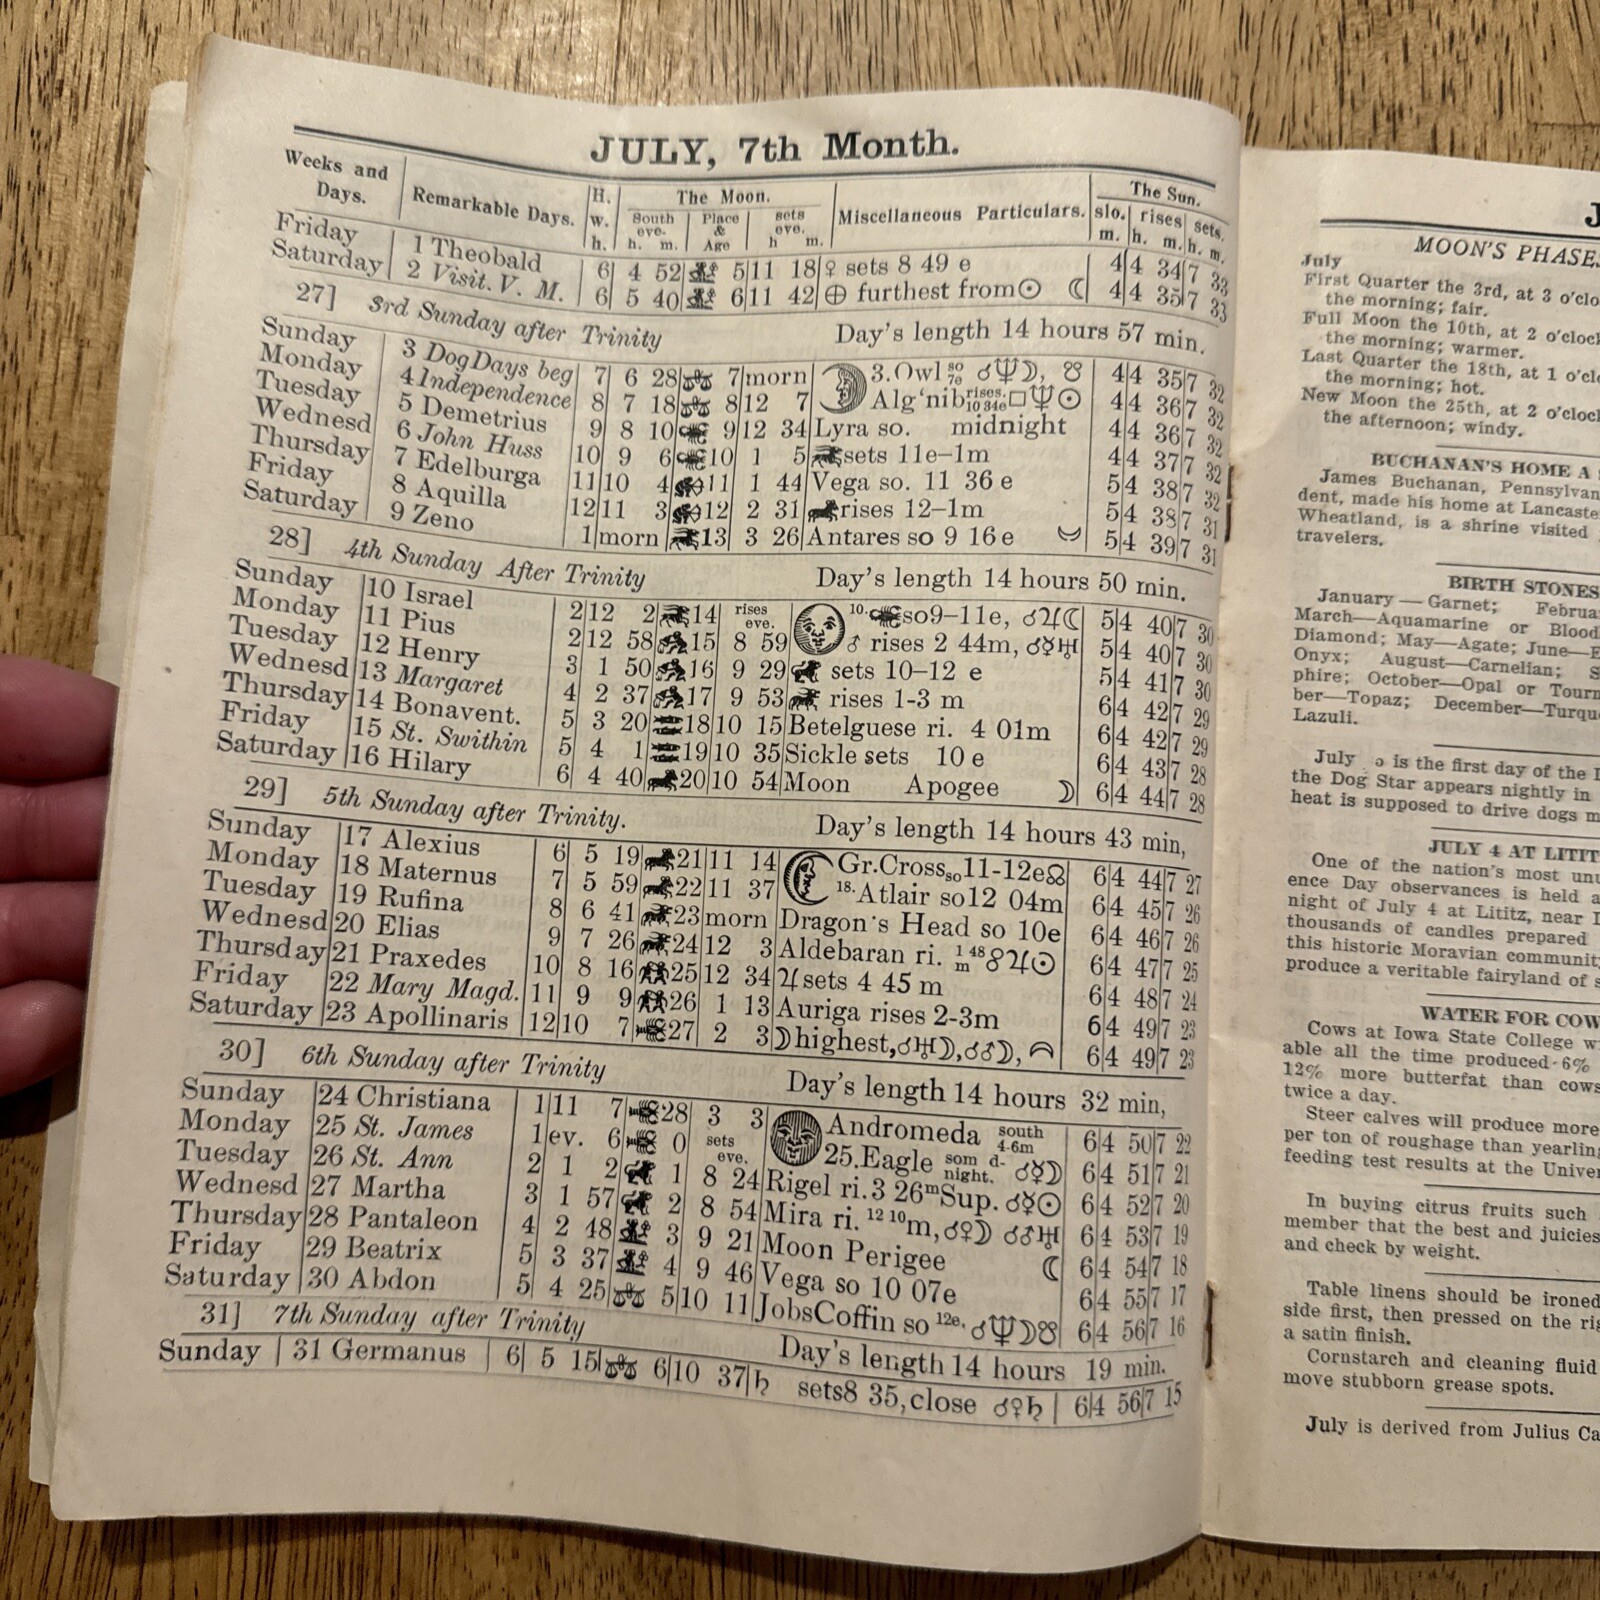 JULY, 7th Month.
Weeks and Days. Remarkable Days. H. w. h. The Moon. South eve. h. m. Place & Age sets eve. h m. Miscellaneous Particulars. The Sun. slo. m. rises h. m. sets. h. m.
Friday 1 Theobald 6 4 52 5 11 18 ♀ sets 8 49 e 4 4 34 7 33
Saturday 2 Visit. V. M. 6 5 40 6 11 42 ⊕ furthest from ☉ ☾ 4 4 35 7 33
27] 3rd Sunday after Trinity Day's length 14 hours 57 min.
Sunday 3 Dog Days beg 7 6 28 7 morn 3. Owl so 7e ☌♆☽, ☋ 4 4 35 7 32
Monday 4 Independence 8 7 18 8 12 7 Alg'nib rises. 10 34e □♆☉ 4 4 36 7 32
Tuesday 5 Demetrius 9 8 10 9 12 34 Lyra so. midnight 4 4 36 7 32
Wednesd 6 John Huss 10 9 6 10 1 5 sets 11e–1m 4 4 37 7 32
Thursday 7 Edelburga 11 10 4 11 1 44 Vega so. 11 36 e 5 4 38 7 32
Friday 8 Aquilla 12 11 3 12 2 31 rises 12–1m 5 4 38 7 31
Saturday 9 Zeno 1 morn 13 3 26 Antares so 9 16 e 5 4 39 7 31
28] 4th Sunday After Trinity Day's length 14 hours 50 min.
Sunday 10 Israel 2 12 2 14 rises eve. 10. so 9–11e, ☌♃☾ 5 4 40 7 30
Monday 11 Pius 2 12 58 15 8 59 ♂ rises 2 44m, ☌☿♅ 5 4 40 7 30
Tuesday 12 Henry 3 1 50 16 9 29 sets 10–12 e 5 4 41 7 30
Wednesd 13 Margaret 4 2 37 17 9 53 rises 1-3 m 6 4 42 7 29
Thursday 14 Bonavent. 5 3 20 18 10 15 Betelguese ri. 4 01m 6 4 42 7 29
Friday 15 St. Swithin 5 4 1 19 10 35 Sickle sets 10 e 6 4 43 7 28
Saturday 16 Hilary 6 4 40 20 10 54 Moon Apogee ☽ 6 4 44 7 28
29] 5th Sunday after Trinity. Day's length 14 hours 43 min,
Sunday 17 Alexius 6 5 19 21 11 14 Gr. Cross so 11-12e ☊ 6 4 44 7 27
Monday 18 Maternus 7 5 59 22 11 37 18. Atlair so 12 04m 6 4 45 7 26
Tuesday 19 Rufina 8 6 41 23 morn Dragon's Head so 10e 6 4 46 7 26
Wednesd 20 Elias 9 7 26 24 12 3 Aldebaran ri. 1 48 m ☍♃☉ 6 4 47 7 25
Thursday 21 Praxedes 10 8 16 25 12 34 ♃ sets 4 45 m 6 4 48 7 24
Friday 22 Mary Magd. 11 9 9 26 1 13 Auriga rises 2-3m 6 4 49 7 23
Saturday 23 Apollinaris 12 10 7 27 2 3 ☽ highest, ☌♅☽, ☌♂☽, 6 4 49 7 23
30] 6th Sunday after Trinity Day's length 14 hours 32 min,
Sunday 24 Christiana 1 11 7 28 3 3 Andromeda south 4-6m 6 4 50 7 22
Monday 25 St. James 1 ev. 6 0 sets eve. 25. Eagle som d-night. ☌☿☽ 6 4 51 7 21
Tuesday 26 St. Ann 2 1 2 1 8 24 Rigel ri. 3 26m Sup. ☌☿☉ 6 4 52 7 20
Wednesd 27 Martha 3 1 57 2 8 54 Mira ri. 12 10 m, ☌♀☽ ☌♂♅ 6 4 53 7 19
Thursday 28 Pantaleon 4 2 48 3 9 21 Moon Perigee ☾ 6 4 54 7 18
Friday 29 Beatrix 5 3 37 4 9 46 Vega so 10 07e 6 4 55 7 17
Saturday 30 Abdon 5 4 25 5 10 11 Jobs Coffin so 12e. ☌♆☽☋ 6 4 56 7 16
31] 7th Sunday after Trinity Day's length 14 hours 19 min.
Sunday 31 Germanus 6 5 15 6 10 37 ♄ sets 8 35, close ☌♀♄ 6 4 56 7 15
J
MOON'S PHASES
July
First Quarter the 3rd, at 3 o'clo
the morning; fair.
Full Moon the 10th, at 2 o'clock
the morning; warmer.
Last Quarter the 18th, at 1 o'clo
the morning; hot.
New Moon the 25th, at 2 o'clock
the afternoon; windy.
BUCHANAN'S HOME A S
James Buchanan, Pennsylvan
dent, made his home at Lancaste
Wheatland, is a shrine visited
travelers.
BIRTH STONES
January—Garnet; Februa
March—Aquamarine or Blood
Diamond; May—Agate; June—E
Onyx; August—Carnelian; S
phire; October—Opal or Tourm
ber—Topaz; December—Turqu
Lazuli.
July is the first day of the D
the Dog Star appears nightly in
heat is supposed to drive dogs m
JULY 4 AT LITIT
One of the nation's most unu
ence Day observances is held a
night of July 4 at Lititz, near L
thousands of candles prepared
this historic Moravian community
produce a veritable fairyland of s
WATER FOR COW
Cows at Iowa State College w
able all the time produced 6%
12% more butterfat than cows
twice a day.
Steer calves will produce more
per ton of roughage than yearling
feeding test results at the Univer
In buying citrus fruits such
member that the best and juicies
and check by weight.
Table linens should be ironed
side first, then pressed on the rig
a satin finish.
Cornstarch and cleaning fluid
move stubborn grease spots.
July is derived from Julius Ca